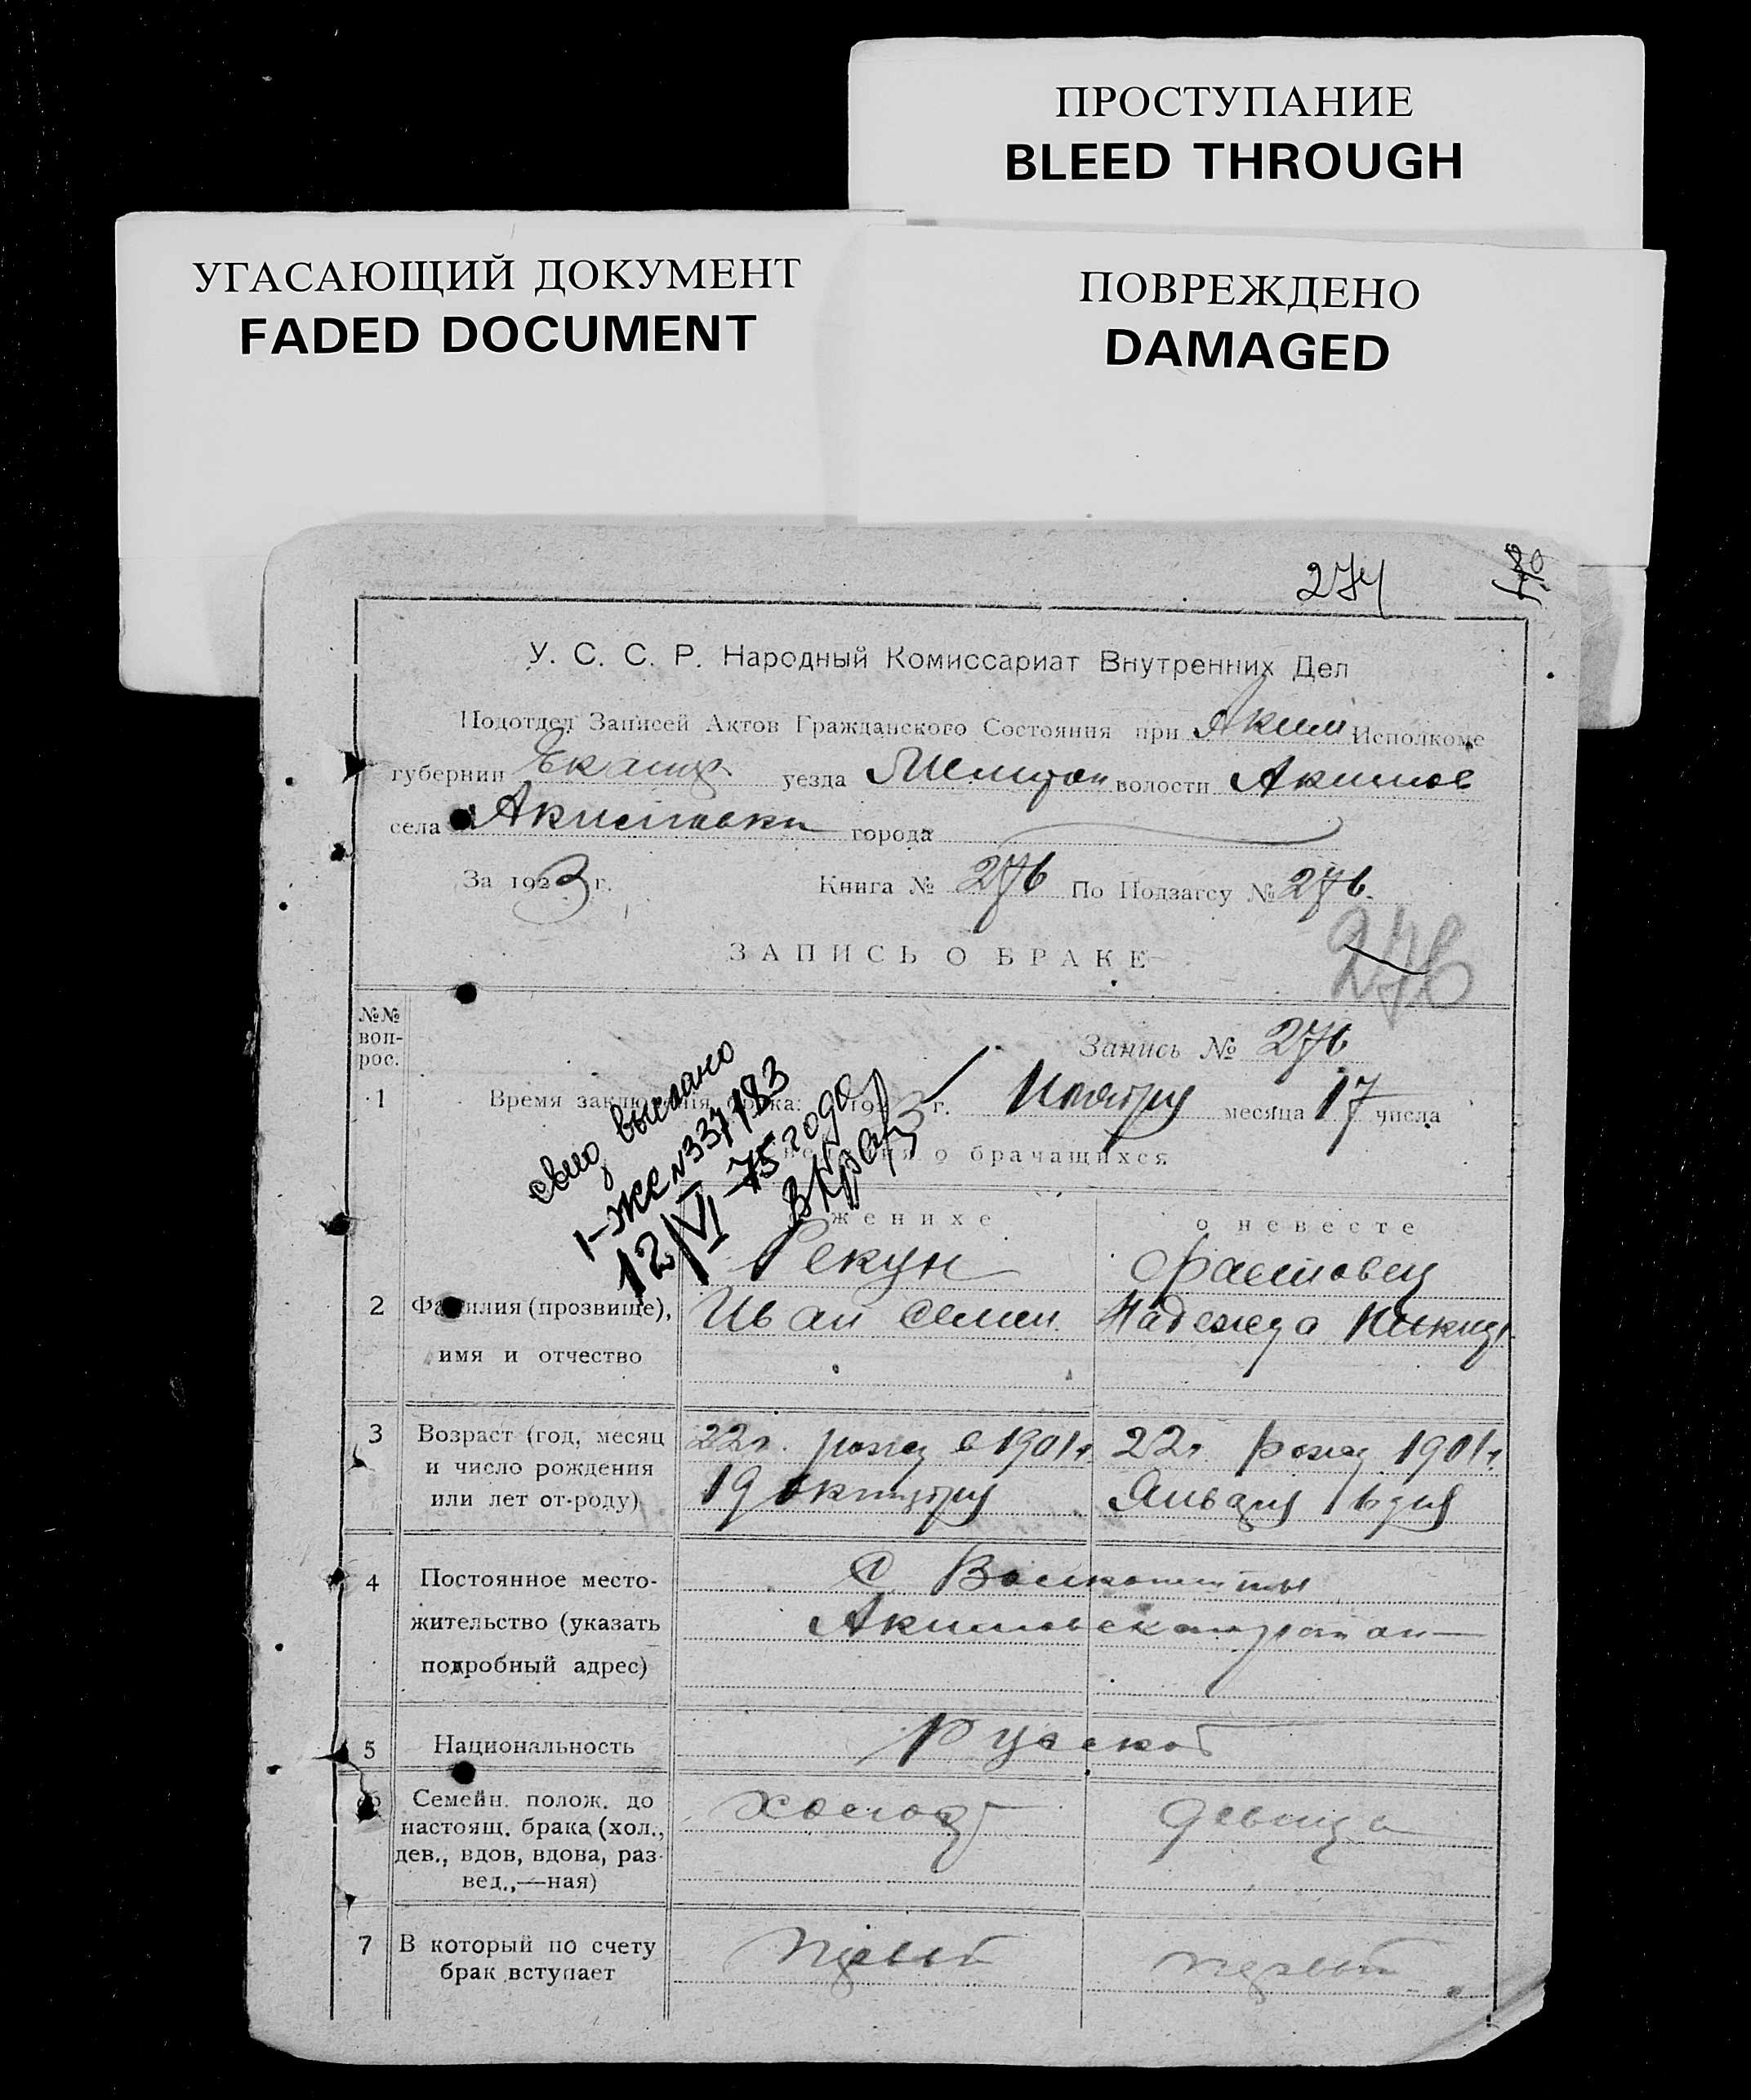 ПРОСТУПАНИЕ
BLEED THROUGH
УГАСАЮЩИЙ ДОКУМЕНТ
FADED DOCUMENT
ПОВРЕЖДЕНО
DAMAGED
274
У. С. С. Р. Народный Комиссариат Внутренних Дел
Подотдел Записей Актов Гражданского Состояния при Аким Исполкоме
губернии Екатер уезда Мелитоп волости Акимов
села Акимовки города
За 1923 г. Книга № 276 По Подзагсу № 276.
276
ЗАПИСЬ О БРАКЕ
№№ воп-рос.
Запись № 276
1 Время заключения брака: 1923 г. Ноября месяца 17 числа
о брачащихся
свид выслано
1-ЖС №337183
12/VI-75 года
женихе
о невесте
Рекун
Фастовец
2 Фамилия (прозвище), Иван Семен. Надежда Никит
имя и отчество
3 Возраст (год, месяц 22 г. рожд в 1901 г. 22 г. рожд 1901 г.
и число рождения
или лет от-роду) 19 октября Января 6 дня
4 Постоянное место-
жительство (указать Акимовского район
подробный адрес)
5 Национальность Русской
Семейн. полож. до холост девица
настоящ. брака (хол.,
дев., вдов, вдова, раз-
вед.,—ная)
7 В который по счету первый первый
брак вступает